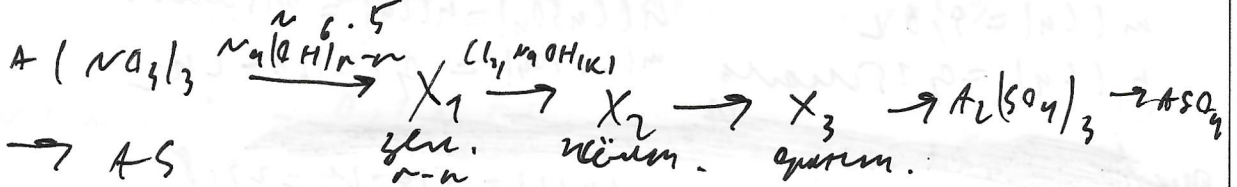 № 6.5
A(NO3)3 Na(OH) р-р → X1 Cl2, NaOH(K) → X2 → X3 → A2(SO4)3 → ASO4
→ AS зел. р-р жёлт. оранж.